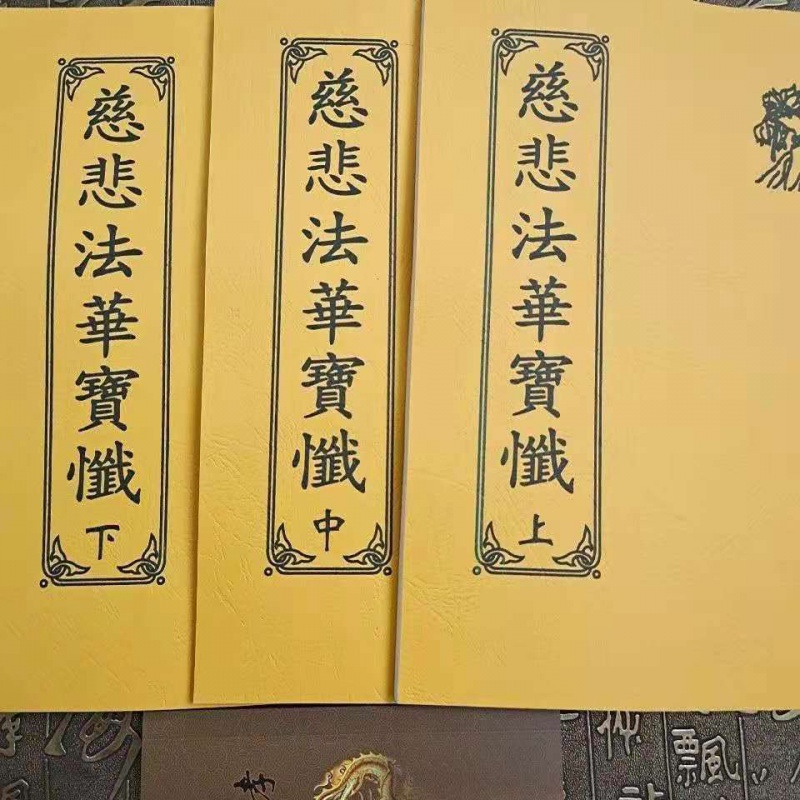 慈悲法華寶懺上
慈悲法華寶懺中
慈悲法華寶懺下
飄